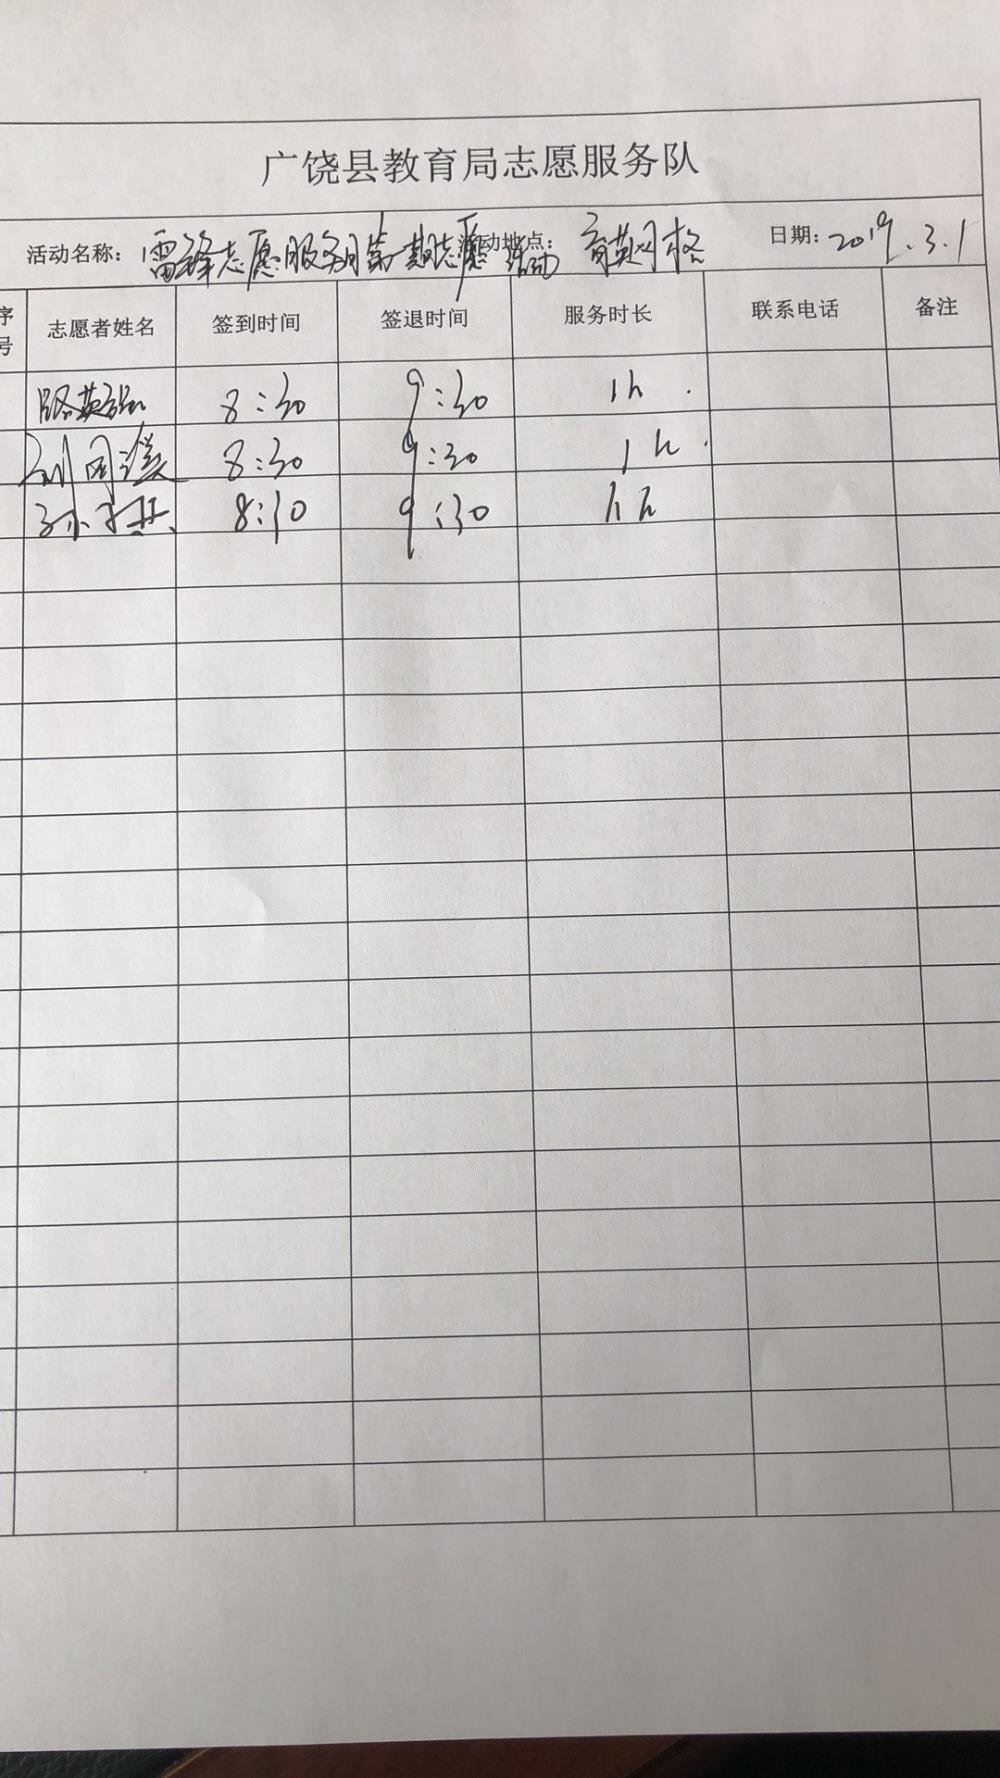 广饶县教育局志愿服务队
活动名称：雷锋志愿服务月第一期志愿活动 活动地点：育英网格 日期：2019.3.1
序号 志愿者姓名 签到时间 签退时间 服务时长 联系电话 备注
路英强 8:30 9:30 1h.
刘同溪 8:30 9:30 1h.
孙 8:30 9:30 1h